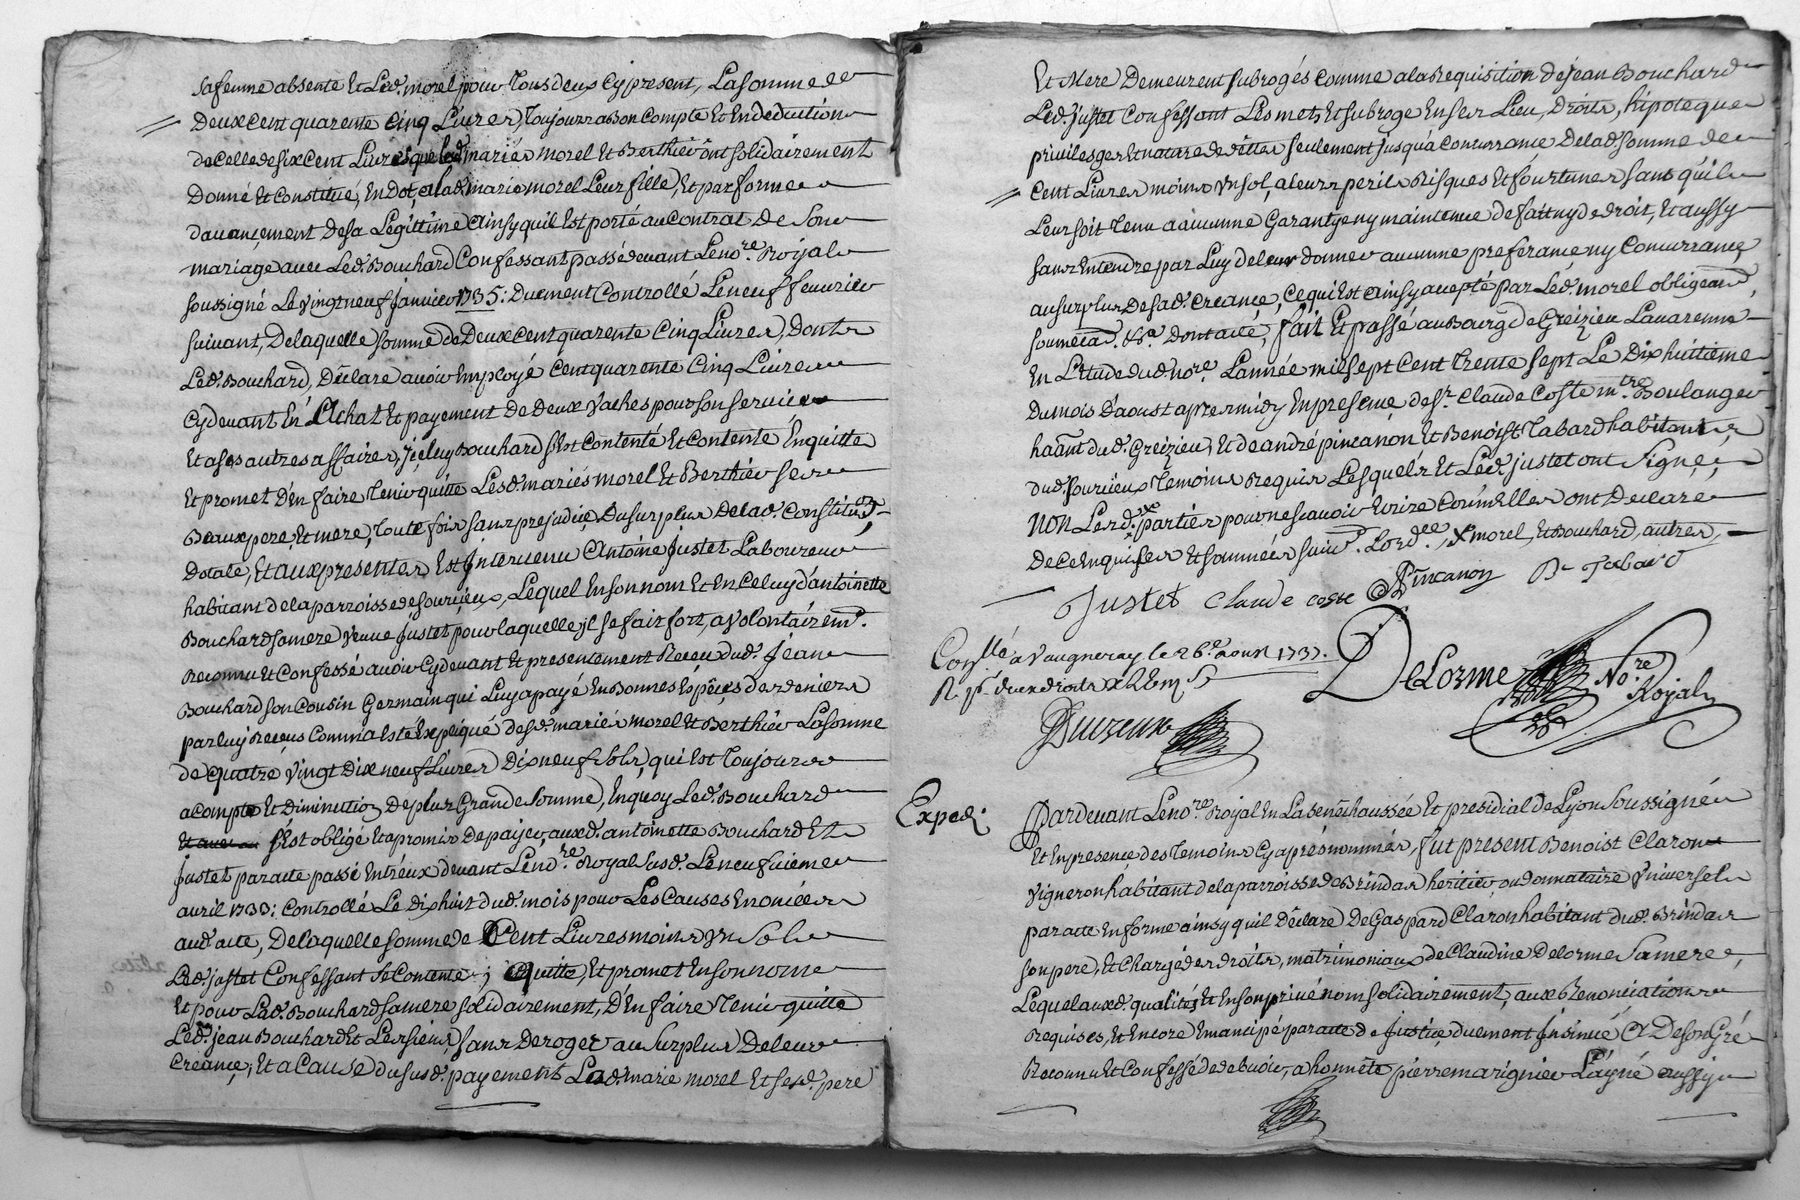 sa femme absente Et Led. morel pour Tous deux Cy present, La somme de
Deux cent quarente Cinq Livres, Toujours a Bon Compte Et En deduction
de celle de six cent Livres que lesd. mariés morel Et Berthier ont solidairement
Donné Et Constitué, En Dot, a lad. marie morel Leur fille, Et par forme
davançement de sa Légittime ainsy quil Est porté au Contrat de Son
mariage avec Led. Bouchard Confessant passé devant Le nore. Royal
soussigné Le vingt neuf Janvier 1735: Duement Controllé Le neuf feuvrier
suivant, De laquelle somme de Deux cent quarente Cinq Livres, Dont
Led. Bouchard, Déclare avoir Employé Cent quarente Cinq Livres
Cy devant En Achat Et payement de Deux vaches pour son service
Et a ses autres affaires, Iceluy Bouchard s'Est Contenté Et Contente En quitte
Et promet D'en faire Tenir quitte Lesd. mariés morel Et Berthier ses
Beaux pere, Et mere, Toute fois sans prejudice Du surplus De lad. Constituon.
Dotale, Et aux presentes, Est Intervenu Antoine Justet Laboureur
habitant de la parroisse de sourcieux, Lequel En son nom Et En Celuy d'antoinette
Bouchard sa mere veuve Justet pour laquelle jl se fait fort, a volontairemt.
reconnu Et Confessé avoir Cy devant Et presentement Receu dud. Jean
Bouchard son Cousin Germain qui Luy a payé En Bonnes Espêces de deniers
par luy Receus Comm'a Esté Expliqué desd. mariés morel Et Berthier La somme
de quatre vingt Dix neuf Livres Dix neuf sols, qui Est Toujours
a Compte Et Diminution De plus Grande somme, En quoy Led. Bouchard
s'Est obligé Et a promis De payer, auxd. antoinette Bouchard Et
Justet par acte passé Entréux devant Le nore. Royal susd. Le neufvieme
avril 1733: Controllé Le Dix huit dud. mois pour Les Causes Enoncées
aud. acte, De laquelle somme de Cent Livres moins un Sol
Led. justet Confessant se Contente, quitte, Et promet En son nom
Et pour Lad. Bouchard sa mere solidairement, D'En faire Tenir quitte
Led. jean Bouchard Et Les siens, sans Deroger au Surplus De leur
Créance, Et a Cause du susd. payement Lad. marie morel Et sesd. pere
Et Mere Demeurent subrogés Comme a la Requisition de jean Bouchard
Led. justet Confessant Les met, Et subroge En ses Lieu, Droits, hipoteque
privileges Et nature de dettes seulement jusqu'à concurrance De lad. somme de
Cent Livres moins un sol, a leurs perils Risques Et fourtunes sans quil
Leur soit Tenu a aucune Garantye ny maintenue de fait ny de droit, Et aussy
sans Entendre par Luy de leur donner aucune preferance ny Concurrance,
au surplus De sad. Creance, Ce qui Est ainsy accepté par Led. morel obligeant,
soumetat. &a. Dont acte, fait Et passé au Bourg de Greizieu Lavarenne
En L'Etude dud nore. L'année mil sept Cent Trente sept Le Dix huitieme
du mois D'aoust apres midy En presence de sr. Claude Coste mtre. Boulanger
haânt dud. Greizieu, Et de andré pincanon Et Benoist Tabard habitants
dud. sourcieux Temoins Requis Lesquels Et Led. justet ont signé,
NON Lesd. parties pour ne scavoir Ecrire Comm'Elles ont Declaré
De ce Enquises Et sommées suivt. Lordce., x morel, Et Bouchard, autres,
Justet Claude coste A Pincanon B. Tabard
Conllé a Vaugneray le 26e. aoust 1737.
DeLorme Nore. Royal
Expedi.
Pardevant Le nore. Royal En La senéchaussée Et presidial de Lyon soussigné
Et En presence des Temoins Cy aprés nommés, fut present Benoist Claron
vigneron habitant de la parroisse de Brindas heritier, ou donnataire universel
par acte En forme ainsy quil Déclare De Gaspard Claron habitant dud. Brindas
son pere, Et Chargé des droits, matrimoniaux de Claudine Delorme sa mere,
Lequel auxd. qualités Et En son privé nom solidairement, aux Renonciations
Requises, Et Encore Emancipé par acte de Justice, duement Insinué & De son Gré
Reconnu Et Confessé de devoir, a honnête pierre marignier L'áyné aussy